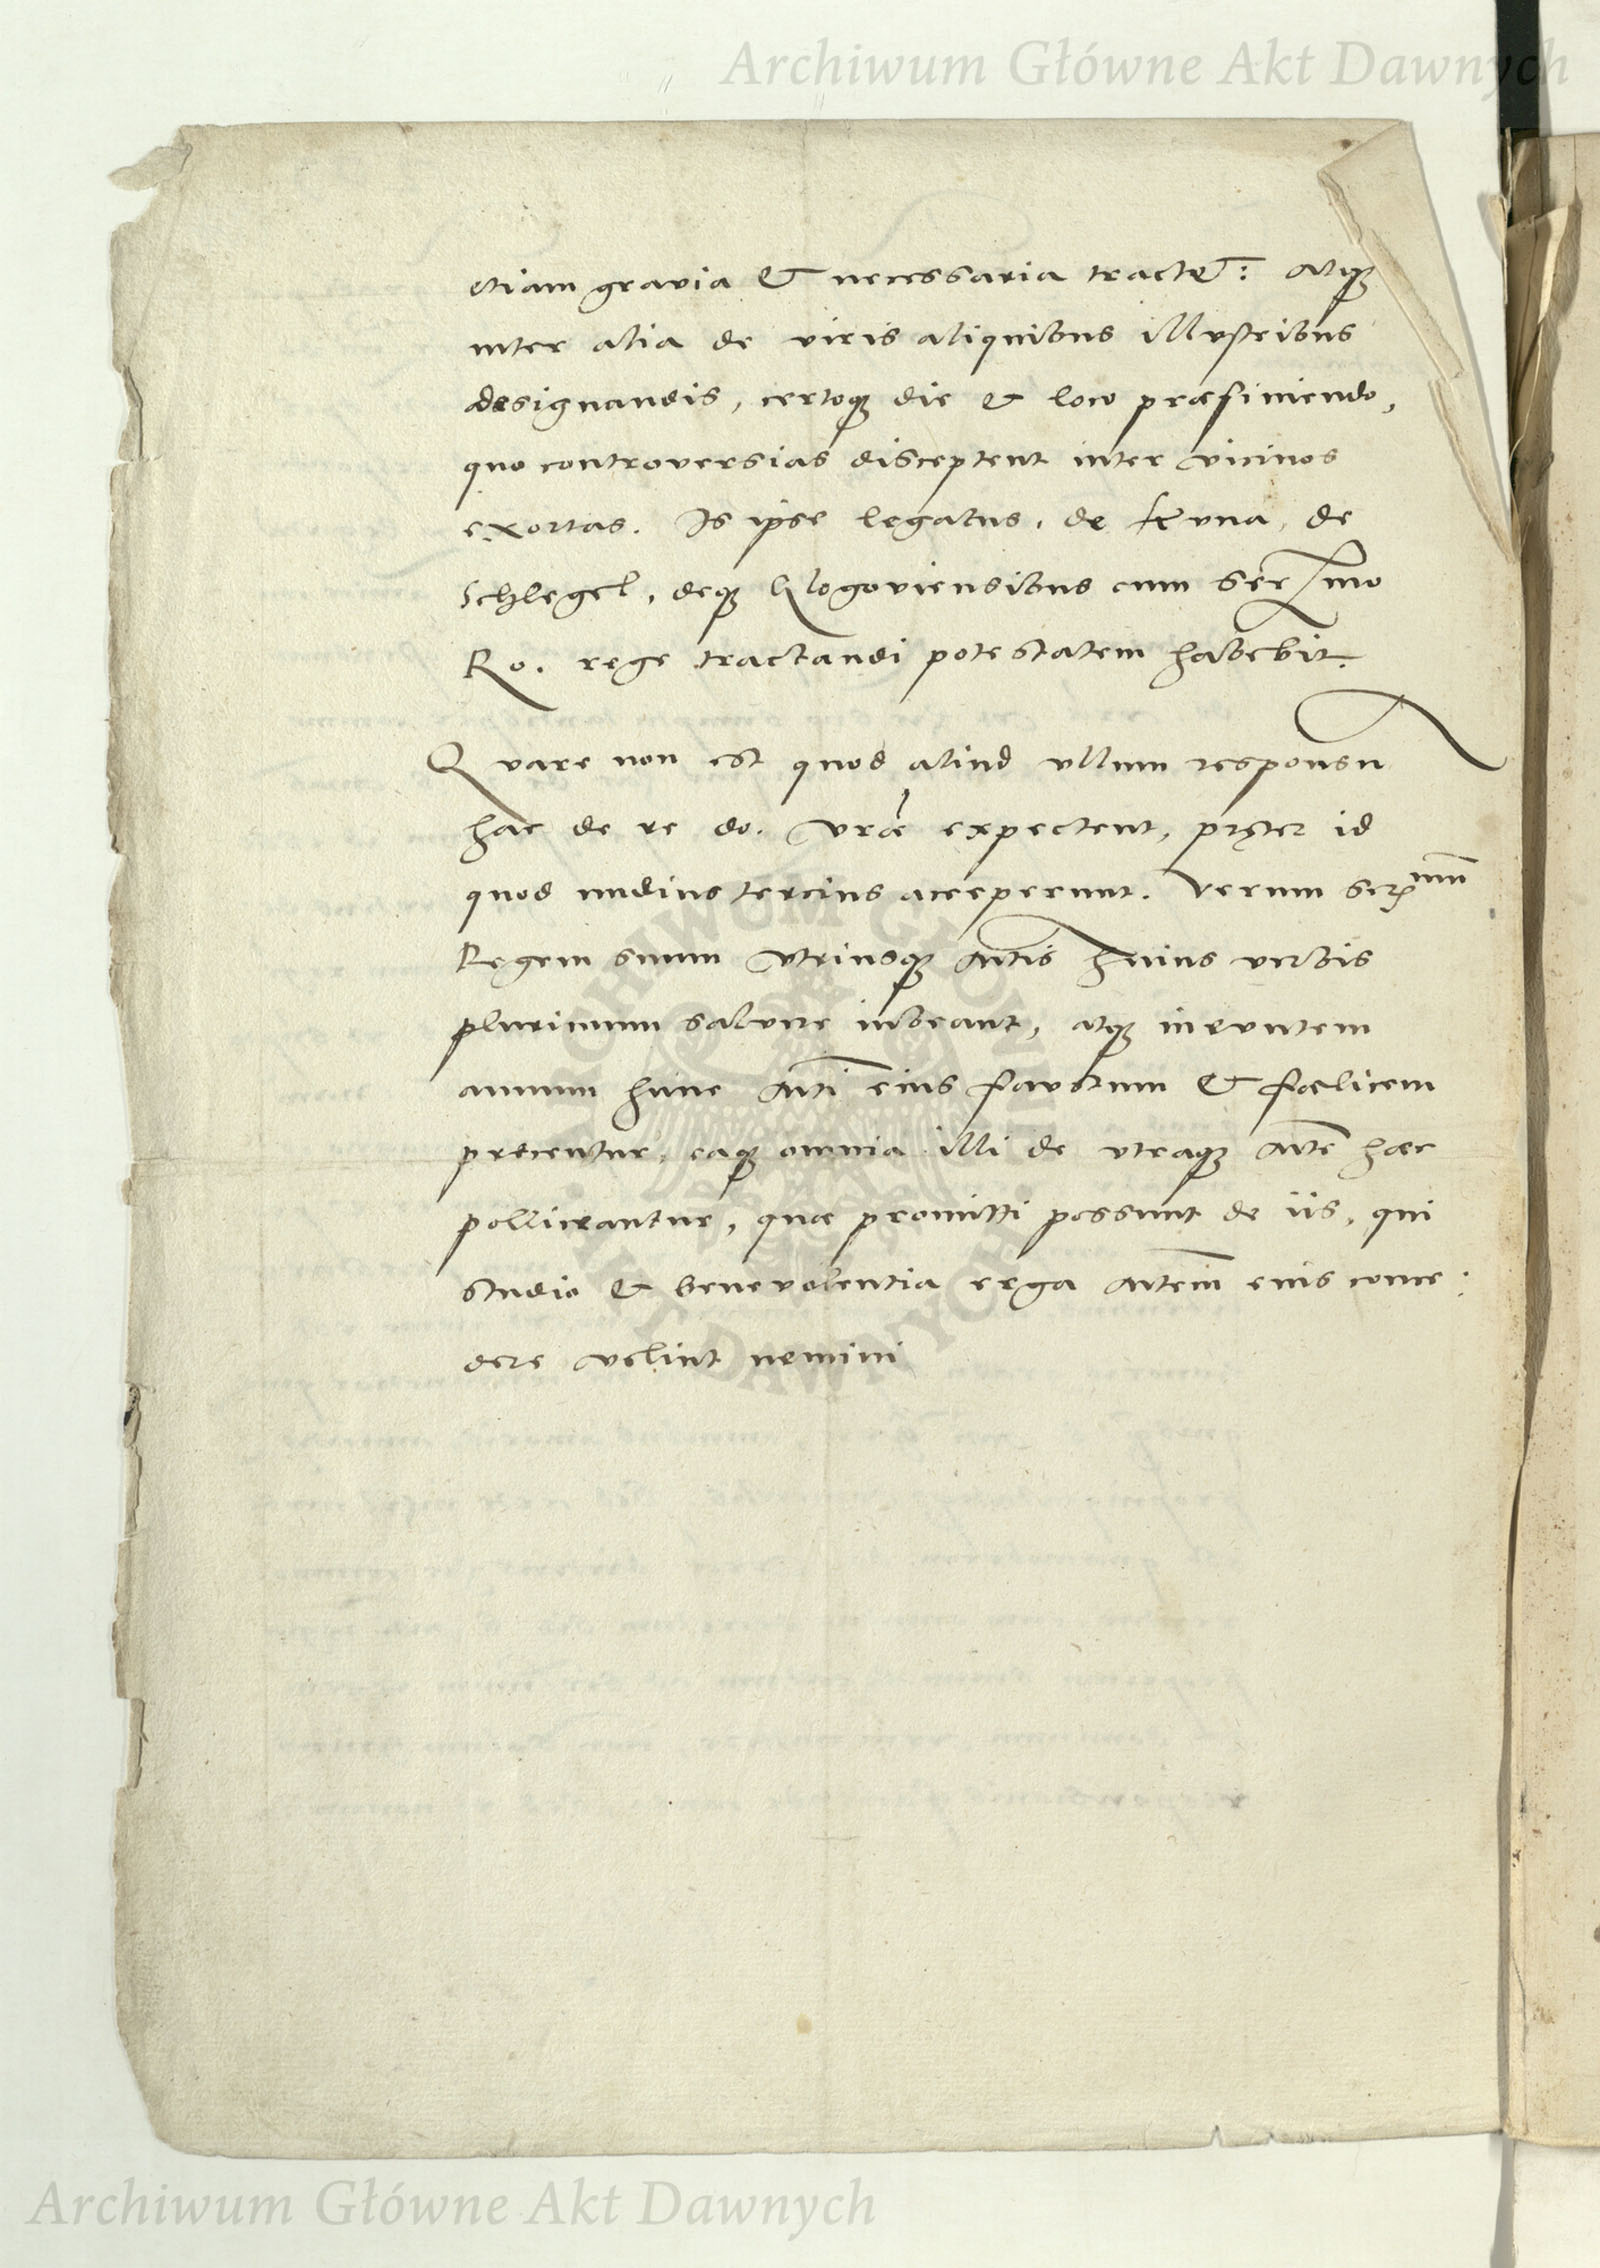 Archiwum Główne Akt Dawnych
etiam gravia & necessaria tractet: atque
inter alia de viris aliquibus illustribus
designandis, certoque die & loco præfiniendo,
quo controversias disceptent inter vicinos
exortas. Is ipse legatus, de una, de
Schlegel, deque Glogoviensibus cum Serᵐᵒ
Ro. rege tractandi potestatem habebit.
Quare non est quod aliud ullum responsū
hac de re do. vræ expectent, pręter id
quod nudius tercius acceperunt. Verum Serᵐᵘᵐ
Regem suum utriusque Mtis huius verbis
plurimum salvere iubeant, atque ineuntem
annum hunc Mti eius faustum & fœlicem
precentur, eaque omnia illi de utraque Mte hac
polliceantur, quæ promitti possunt de iis, qui
studio & benevolentia erga Mtem eius conce:
dere velint nemini
ARCHIWUM GŁÓWNE AKT DAWNYCH
Archiwum Główne Akt Dawnych